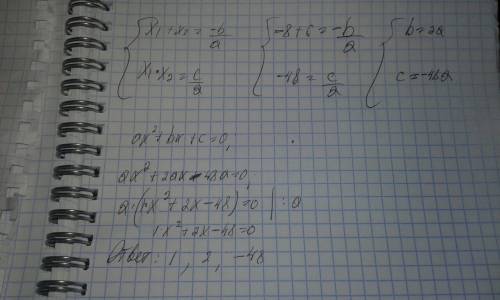 { x₁+x₂ = -b/a { -8+6 = -b/a { b=2a
{ x₁·x₂ = c/a { -48 = c/a { c=-48a
ax²+bx+c=0,
ax²+2ax-48a=0,
a·(1x²+2x-48)=0 | :a
1x²+2x-48=0
Ответ: 1, 2, -48